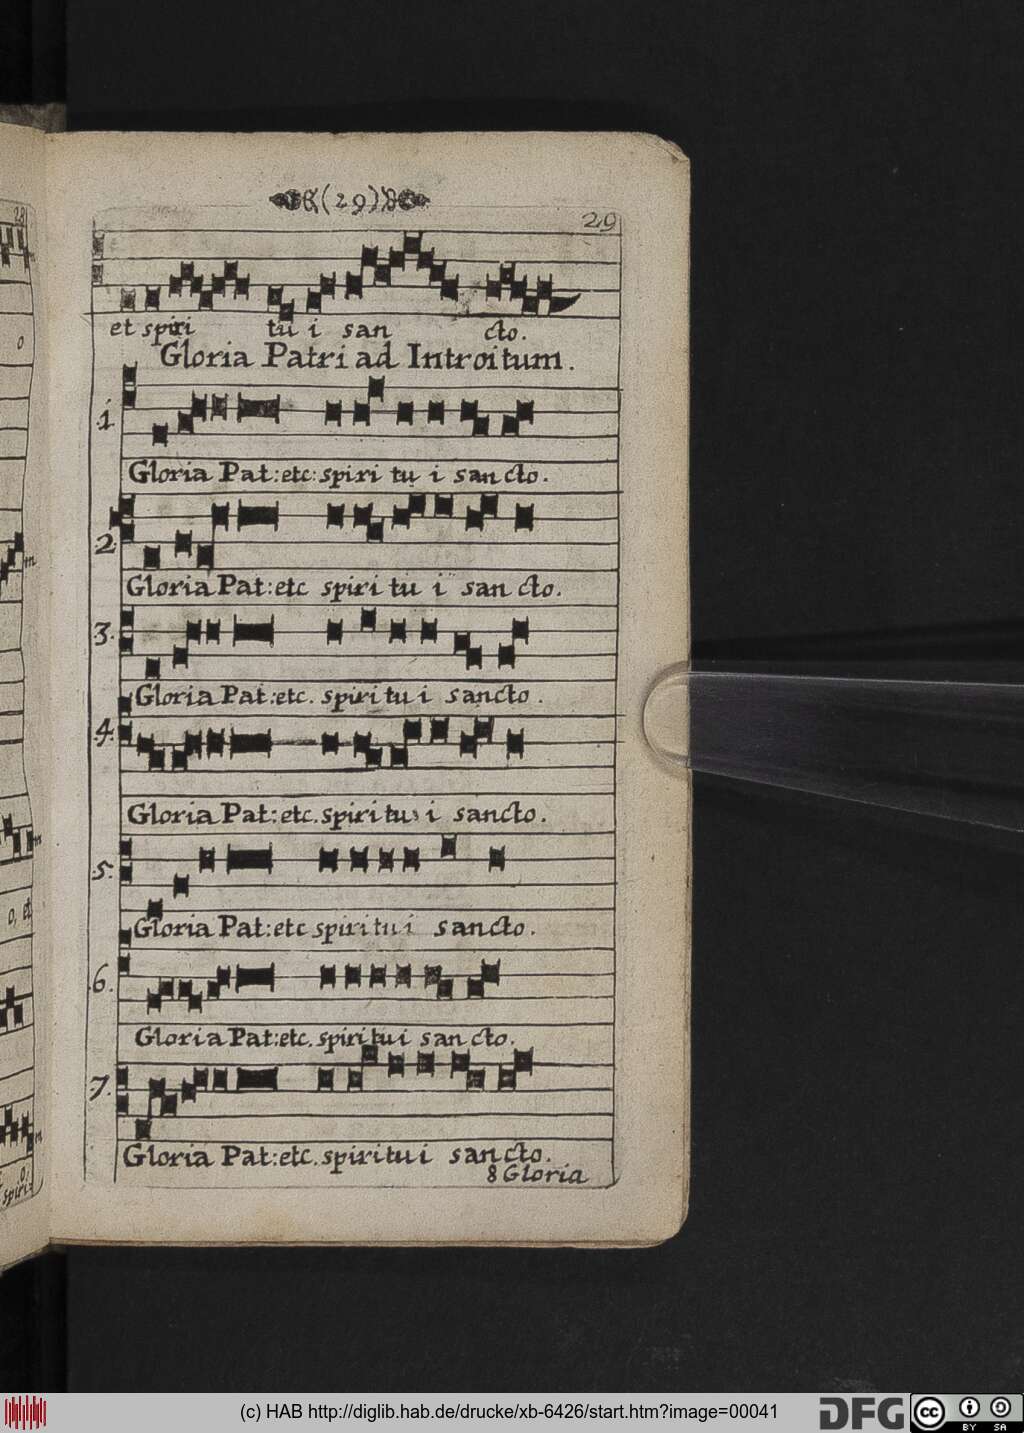 (29)
29
et spiri tu i san cto.
Gloria Patri ad Introitum.
1
Gloria Pat: etc: spiri tu i san cto.
2.
Gloria Pat: etc spiri tu i san cto.
3.
Gloria Pat: etc. spiritu i sancto.
4.
Gloria Pat: etc. spiritu i sancto.
5.
Gloria Pat: etc spiritui sancto.
6.
Gloria Pat: etc. spiritui san cto.
7.
Gloria Pat: etc. spiritui sancto.
8 Gloria
28
o
o, et
o.
spiri:
(c) HAB http://diglib.hab.de/drucke/xb-6426/start.htm?image=00041
DFG
cc BY SA